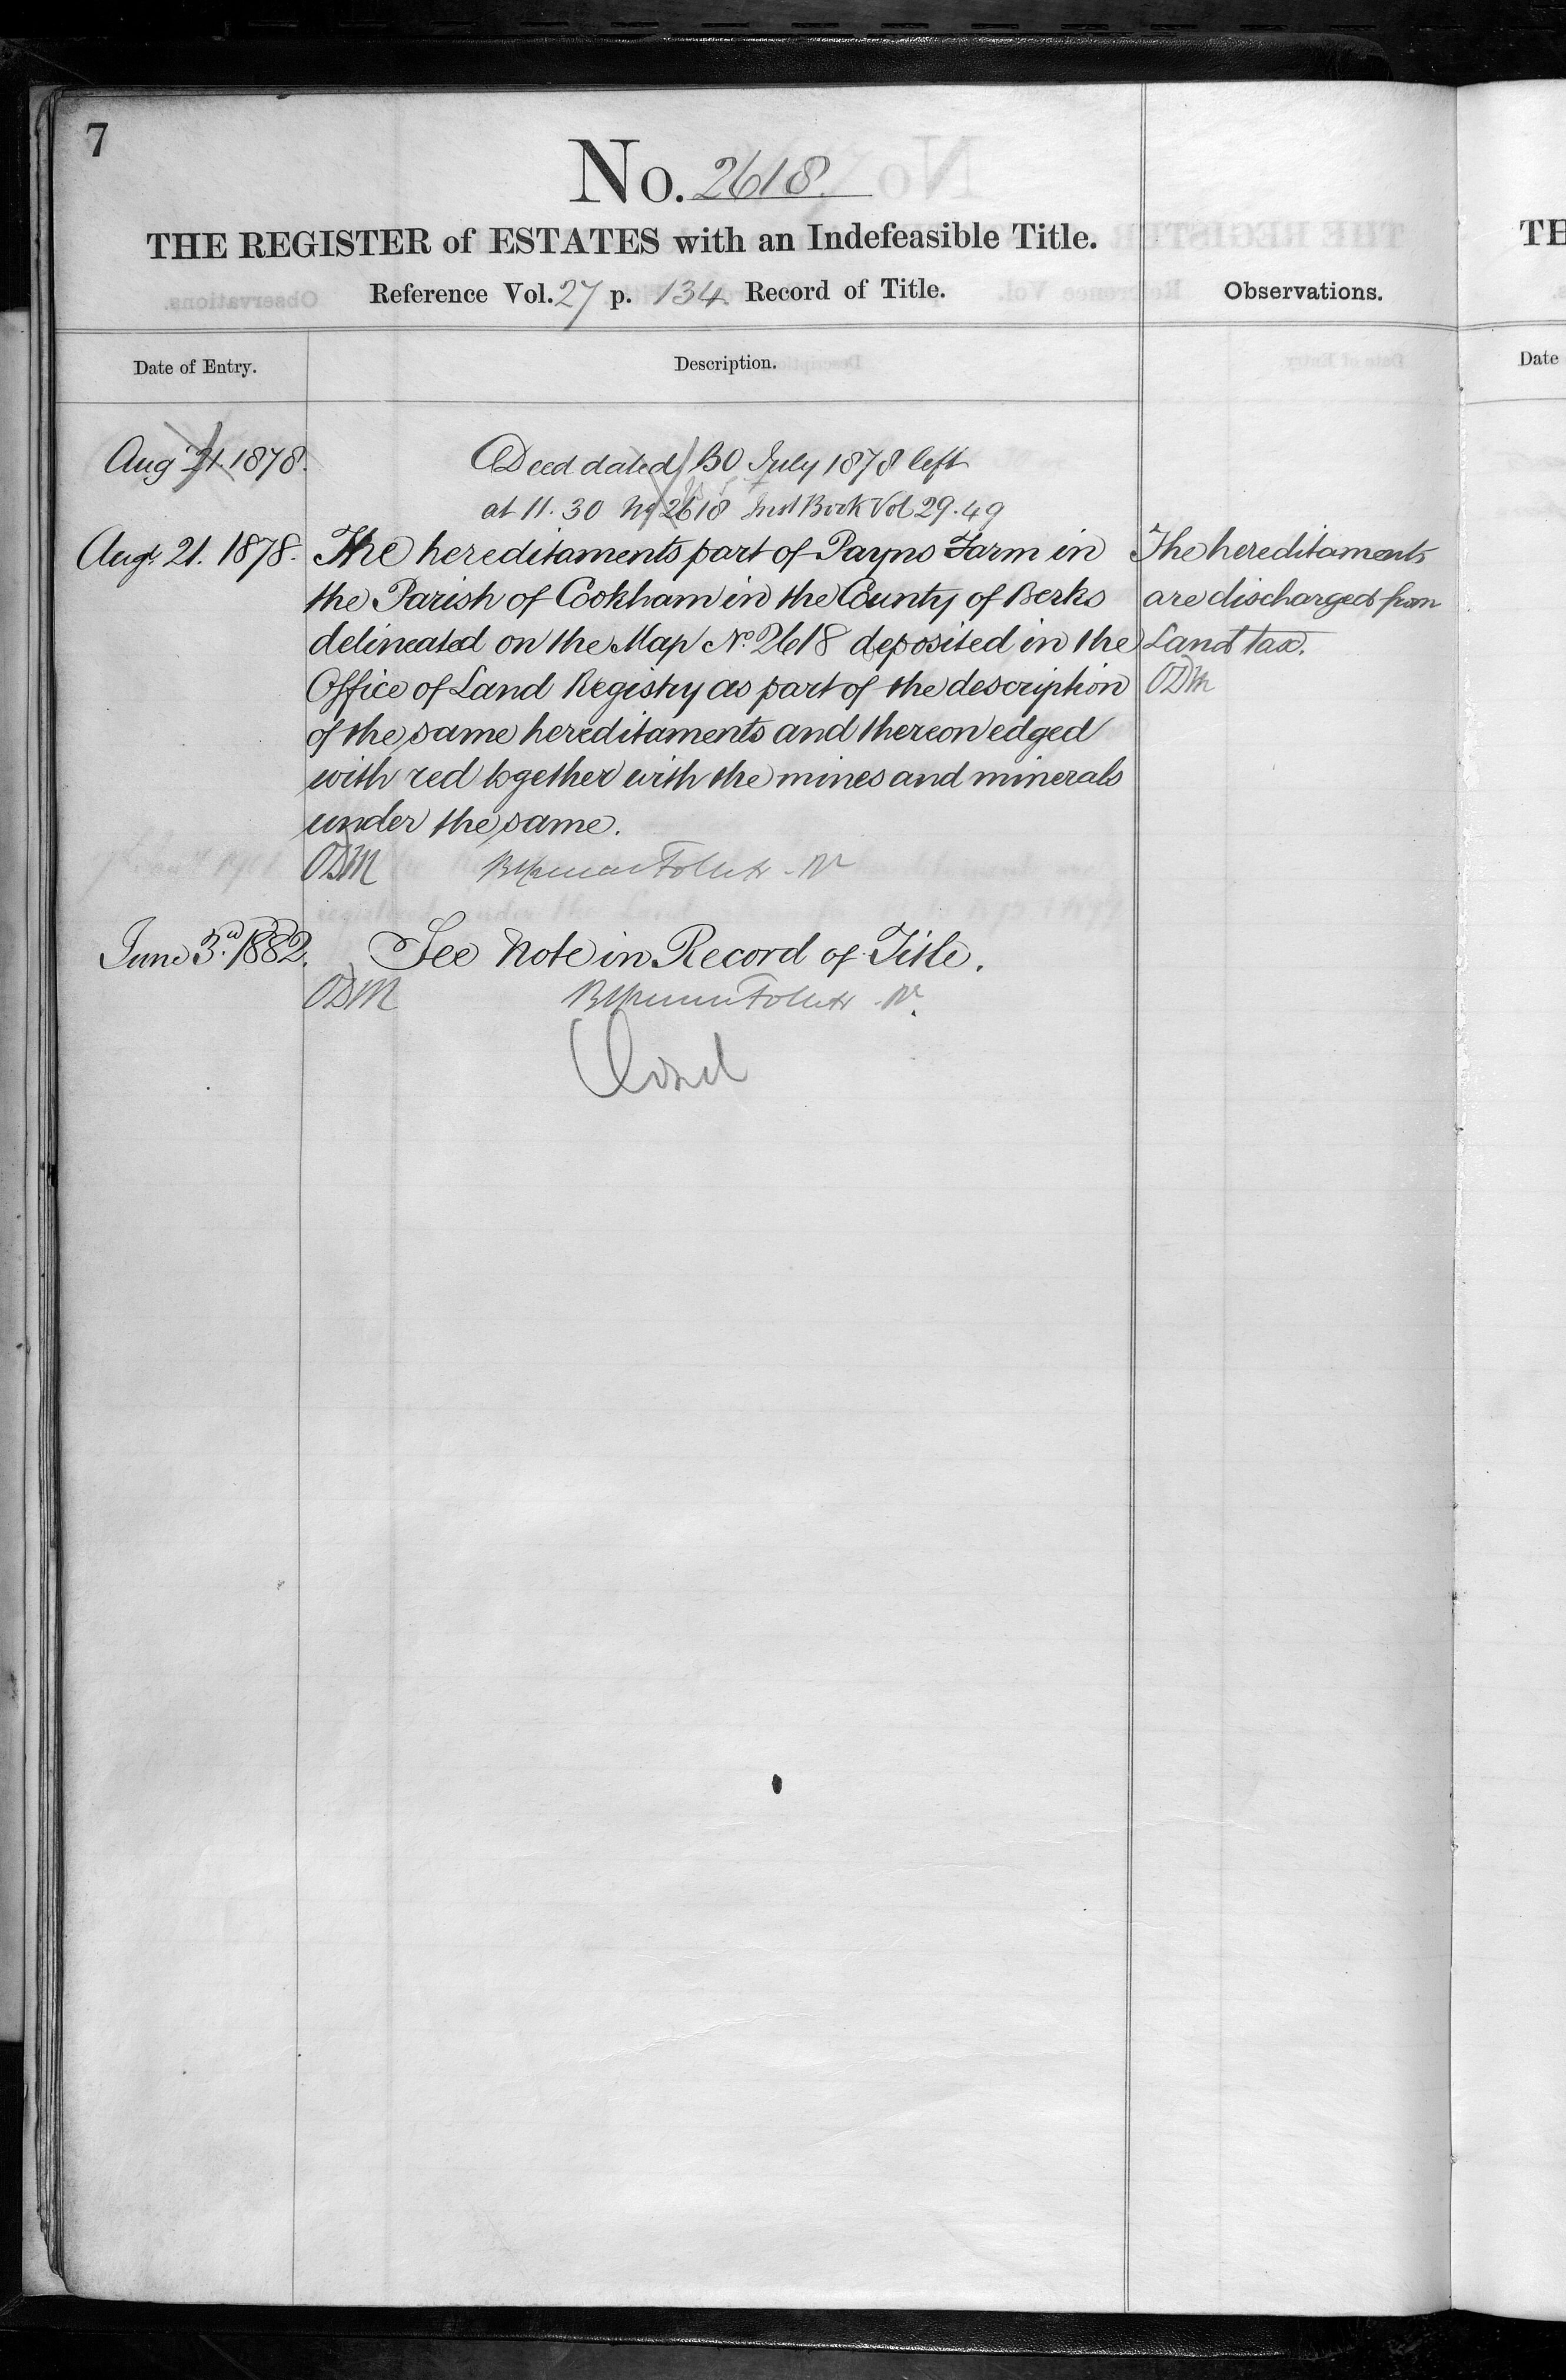 7
No. 2618.
THE REGISTER of ESTATES with an Indefeasible Title.
Reference Vol. 27 p. 134 Record of Title.
Observations.
Date of Entry.
Description.
Date
Aug 21. 1878.
Deed dated 30 July 1878 left
at 11.30 No 2618 Inst Book Vol 29.49
Augt. 21. 1878.
The hereditaments part of Payns Farm in
the Parish of Cookham in the County of Berks
delineated on the Map No. 2618 deposited in the
Office of Land Registry as part of the description
of the same hereditaments and thereon edged
with red together with the mines and minerals
under the same.
ODM
The hereditaments
are discharged from
Land tax.
ODM
June 3rd. 1882.
See Note in Record of Title.
ODM
Closed
TH